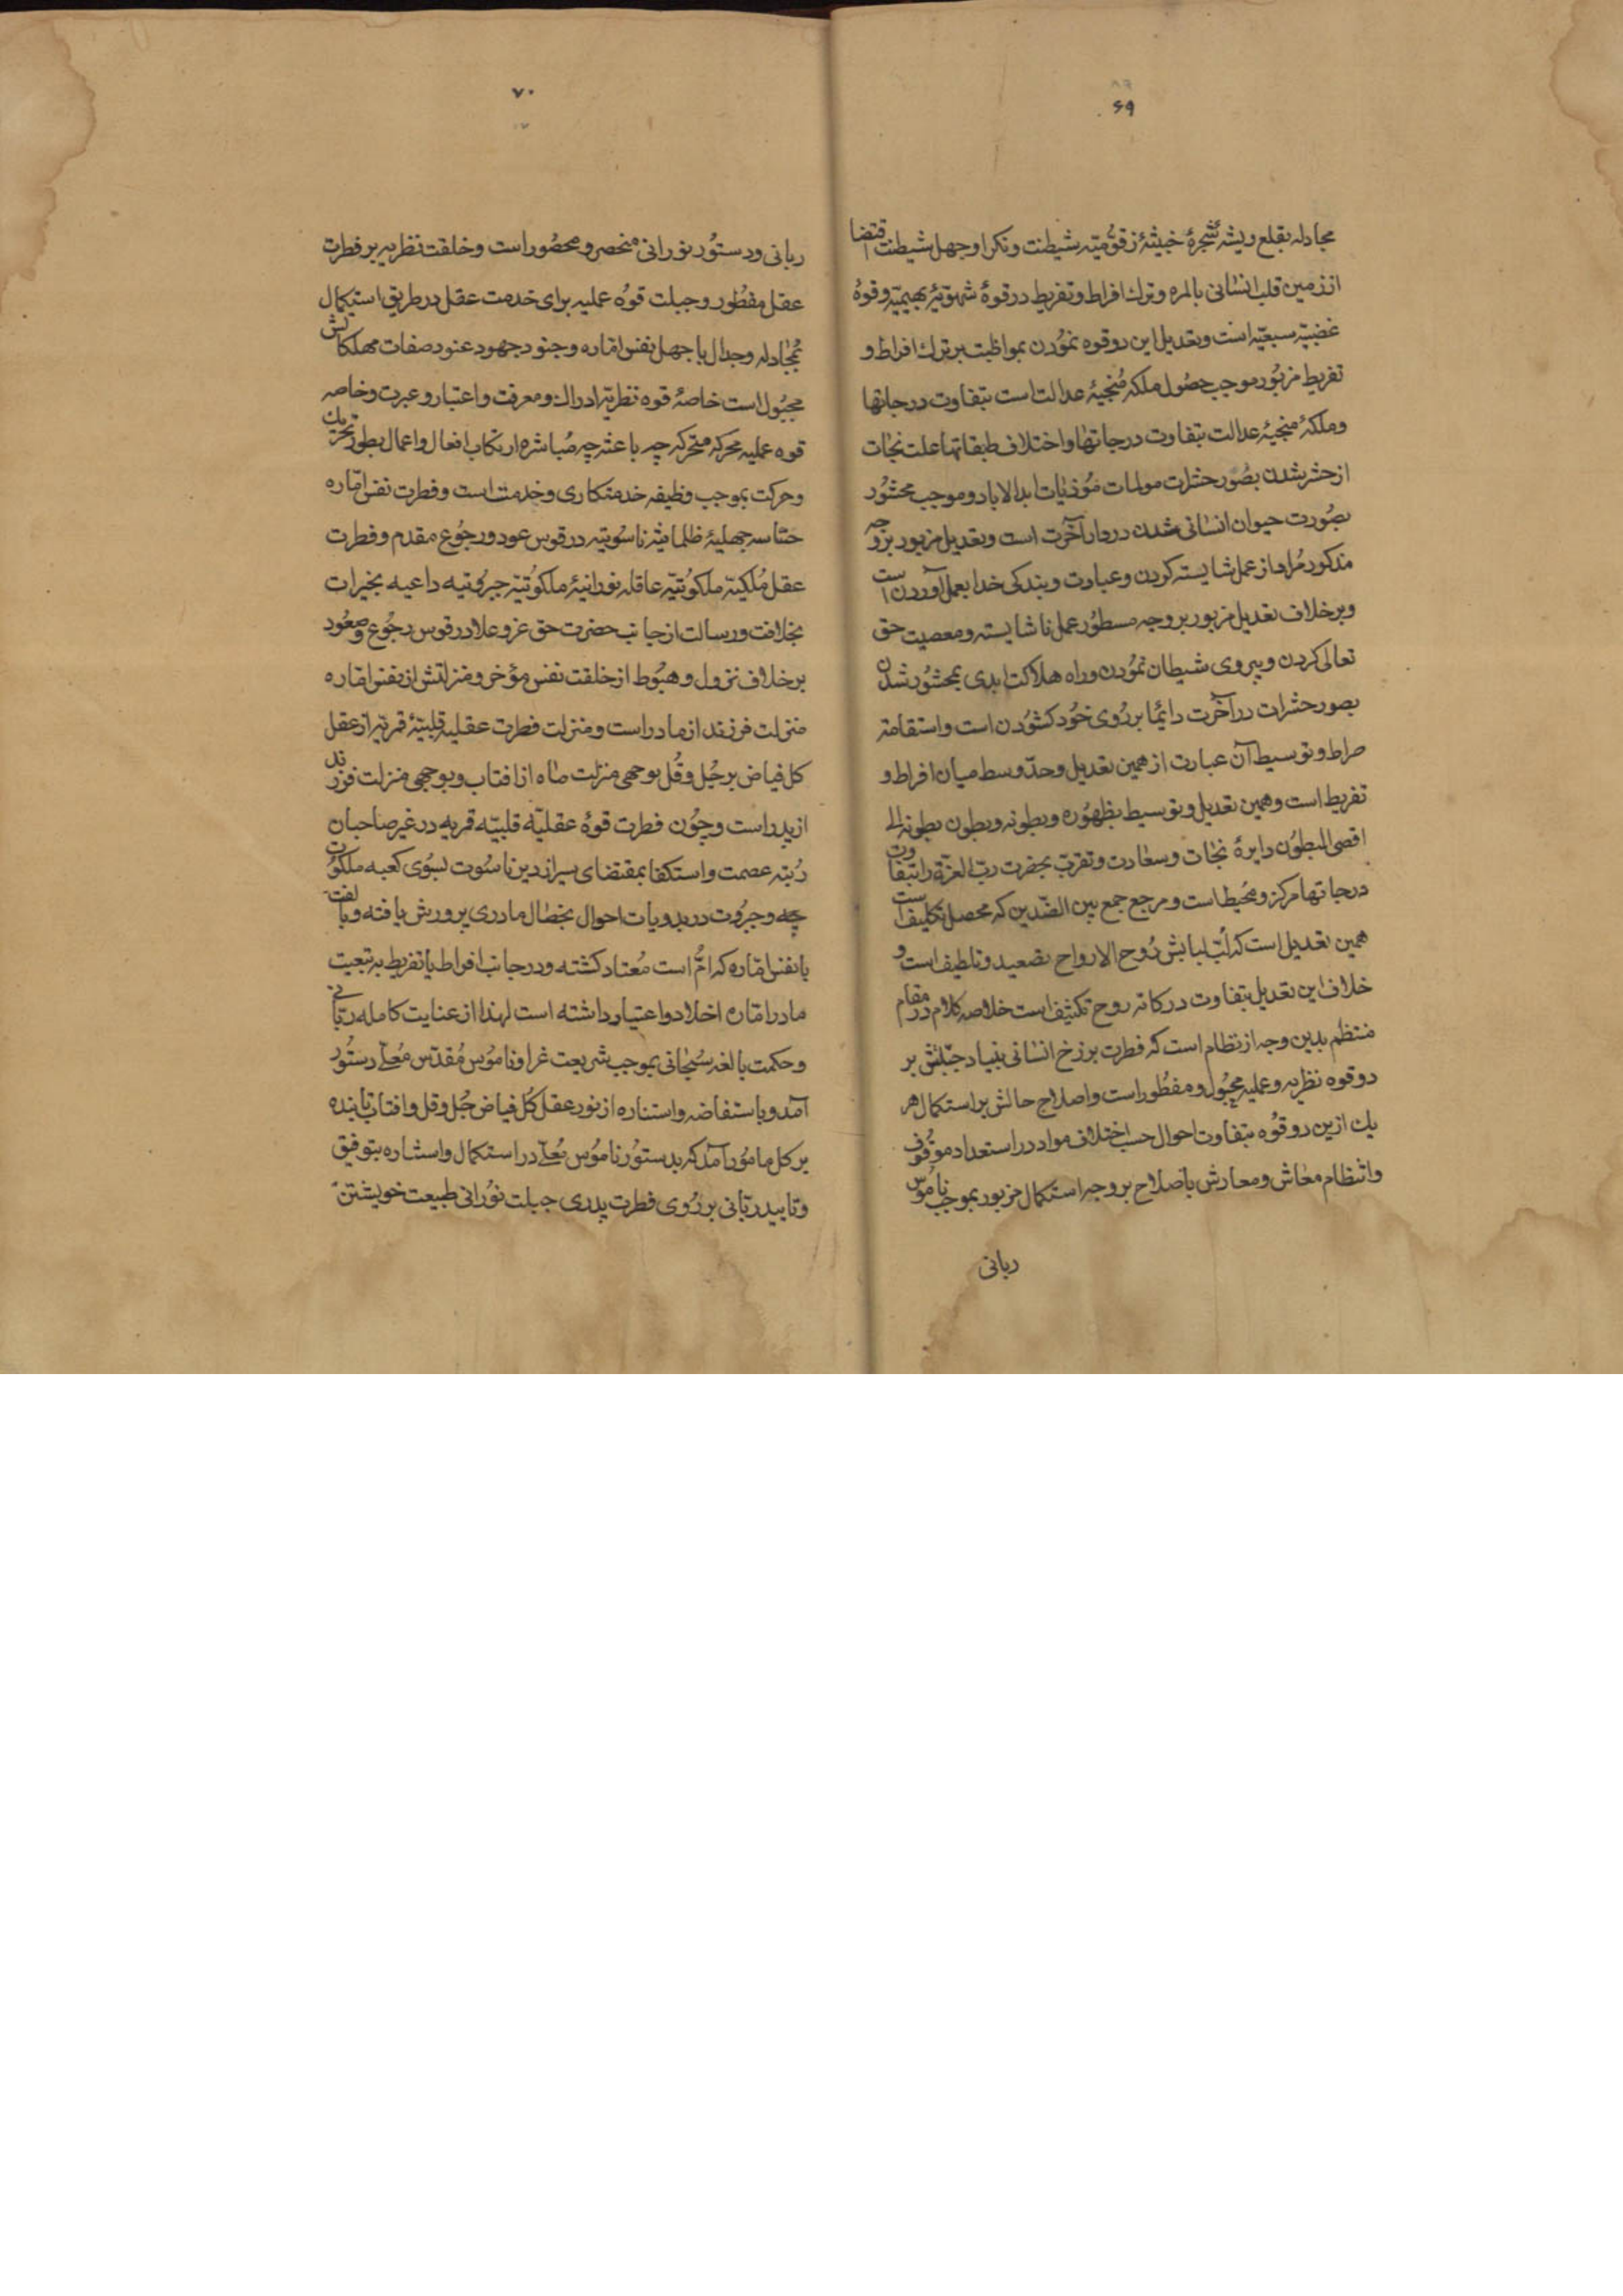 ۶۹
مجادله بقلع ریشهٔ شجرهٔ خبیثهٔ زقومیّه شیطنت ونکرا وجهل شیطنت اقتضا
از زمین قلب انسانی بالمره وترك افراط وتفریط در قوهٔ شهویّهٔ بهیمیّه وقوهٔ
غضبیّه سبعیّه است وتعدیل این دو قوه نمودن بمواظبت بر ترك افراط و
تفریط مزبور موجب حصول ملکهٔ منجیهٔ عدالت است بتفاوت درجاتها
وملکهٔ منجیهٔ عدالت بتفاوت درجاتها واختلاف طبقاتها علت نجات
از حشر شدن بصور حشرات مولمات موذیات ابدالاباد وموجب محشور
بصورت حیوان انسانی شدن در دار آخرت است وتعدیل مزبور بر وجه
مذکور مراد از عمل شایسته کردن وعبادت وبندکی خدا بعمل آوردن است
وبر خلاف تعدیل مزبور بر وجه مسطور عمل ناشایسته ومعصیت حق
تعالی کردن وپیروی شیطان نمودن وراه هلاکت ابدی بمحشور شدن
بصور حشرات در آخرت دایما بر روی خود کشودن است واستقامة
صراط وتوسیط آن عبارت از همین تعدیل وحدّ وسط میان افراط و
تفریط است وهمین تعدیل وتوسیط بظهوره وبطونه وبطون بطونه الی
اقصی البطون دایرهٔ نجات وسعادت وتقرب بحضرت ربّ العزة را بتفاوت
درجاتها مرکز ومحیط است ومرجع جمع بین الضّدین که محصل تکلیف است
همین تعدیل است که لُبّ لبابش روح الارواح تصعید وتلطیف است و
خلاف این تعدیل بتفاوت درکاته روح تکثیف است خلاصه کلام در مقام
منتظم بدین وجه از نظام است که فطرت برزخ انسانی بنیاد جبلّتش بر
دو قوه نظریه وعملیه مجبول ومفطور است واصلاح حالش بر استکمال هر
یك ازین دو قوه بتفاوت احوال حسب اختلاف مواد در استعداد موقوف
وانتظام معاش ومعادش باصلاح بر وجه استکمال مزبور بموجب ناموس
ربانی
۷۰
ربانی ودستور نورانی منحصر ومحصور است وخلقت نظریه بر فطرت
عقل مفطور وجبلت قوه عملیه برای خدمت عقل در طریق استکمال
بمجادله وجدال با جهل نفس اماره وجنود جهود عنود صفات مهلکاتش
مجبول است خاصهٔ قوه نظریّه ادراك ومعرفت واعتبار وعبرت وخاصه
قوه عملیه محرکه متحرکه چه باعثه چه مباشره ارتکاب افعال واعمال بطور تحریك
وحرکت بموجب وظیفه خدمتکاری وخدمت است وفطرت نفس امّاره
حسّاسه جهلیهٔ ظلمانیّه ناسوتیه در قوس عود ورجوع مقدم وفطرت
عقل مُلکیّه ملکوتیّه عاقله نورانیهٔ ملکوتیّه جبروتیه داعیه بخیرات
بخلافت ورسالت از جانب حضرت حق عز وعلا در قوس رجوع وصعود
بر خلاف نزول وهبوط از خلقت نفس مؤخر ومنزلتش از نفس امّاره
منزلت فرزند از مادر است ومنزلت فطرت عقلیه قلبیّهٔ قمریّه از عقل
کل فیاض بر جُل وقُل بوجهی منزلت ماه از افتاب وبوجهی منزلت فرزند
از پدر است وچون فطرت قوهٔ عقلیّه قلبیّه قمریه در غیر صاحبان
رتبه عصمت واستکفا بمقتضای سیر از دین ناسوت بسوی کعبه ملکوت
وجبروت در بدویات احوال بخصال مادری پرورش یافته وبا لفت
با نفس امّاره که امّ است معتاد کشته ودر جانب افراط یا تفریط به تبعیت
مادر امّاره اخلاد واعتیاد داشته است لهذا از عنایت کامله ربّانی
وحکمت بالغه سبحانی بموجب شریعت غرا وناموس مقدّس معلّی دستور
آمد وباستفاضه واستناره از نور عقل کُل فیاض جُل وقل وافتاب تابنده
بر کل مامور آمد که بدستور ناموس معلّی در استکمال واستناره بتوفیق
وتایید ربّانی بر روی فطرت پدری جبلت نورانی طبیعت خویشتن